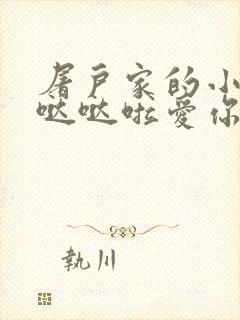 屠户家的小
哒哒啦爱你
執川